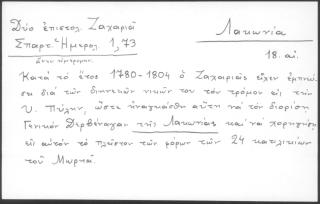 Δύο ἐπιστολ. Ζαχαριᾶ
Σπαρτ. Ἡμερολ. 1,73
Λακωνία
18. αἰ.
Κατὰ τὸ ἔτος 1780-1804 ὁ Ζαχαριᾶς εἶχεν ἐμπνεύ-
σει διὰ τῶν διηνεκῶν νικῶν του τὸν τρόμον εἰς τὴν
Ὑ. Πύλην, ὥστε ἠναγκάσθη αὕτη νὰ τὸν διορίσῃ
Γενικὸν Δερβέναγαν τῆς Λακωνίας καὶ νὰ χορηγήσῃ
εἰς αὐτὸν τὸ πλεῖστον τῶν φόρων τῶν 24 κατιλικίων
τοῦ Μωριᾶ.